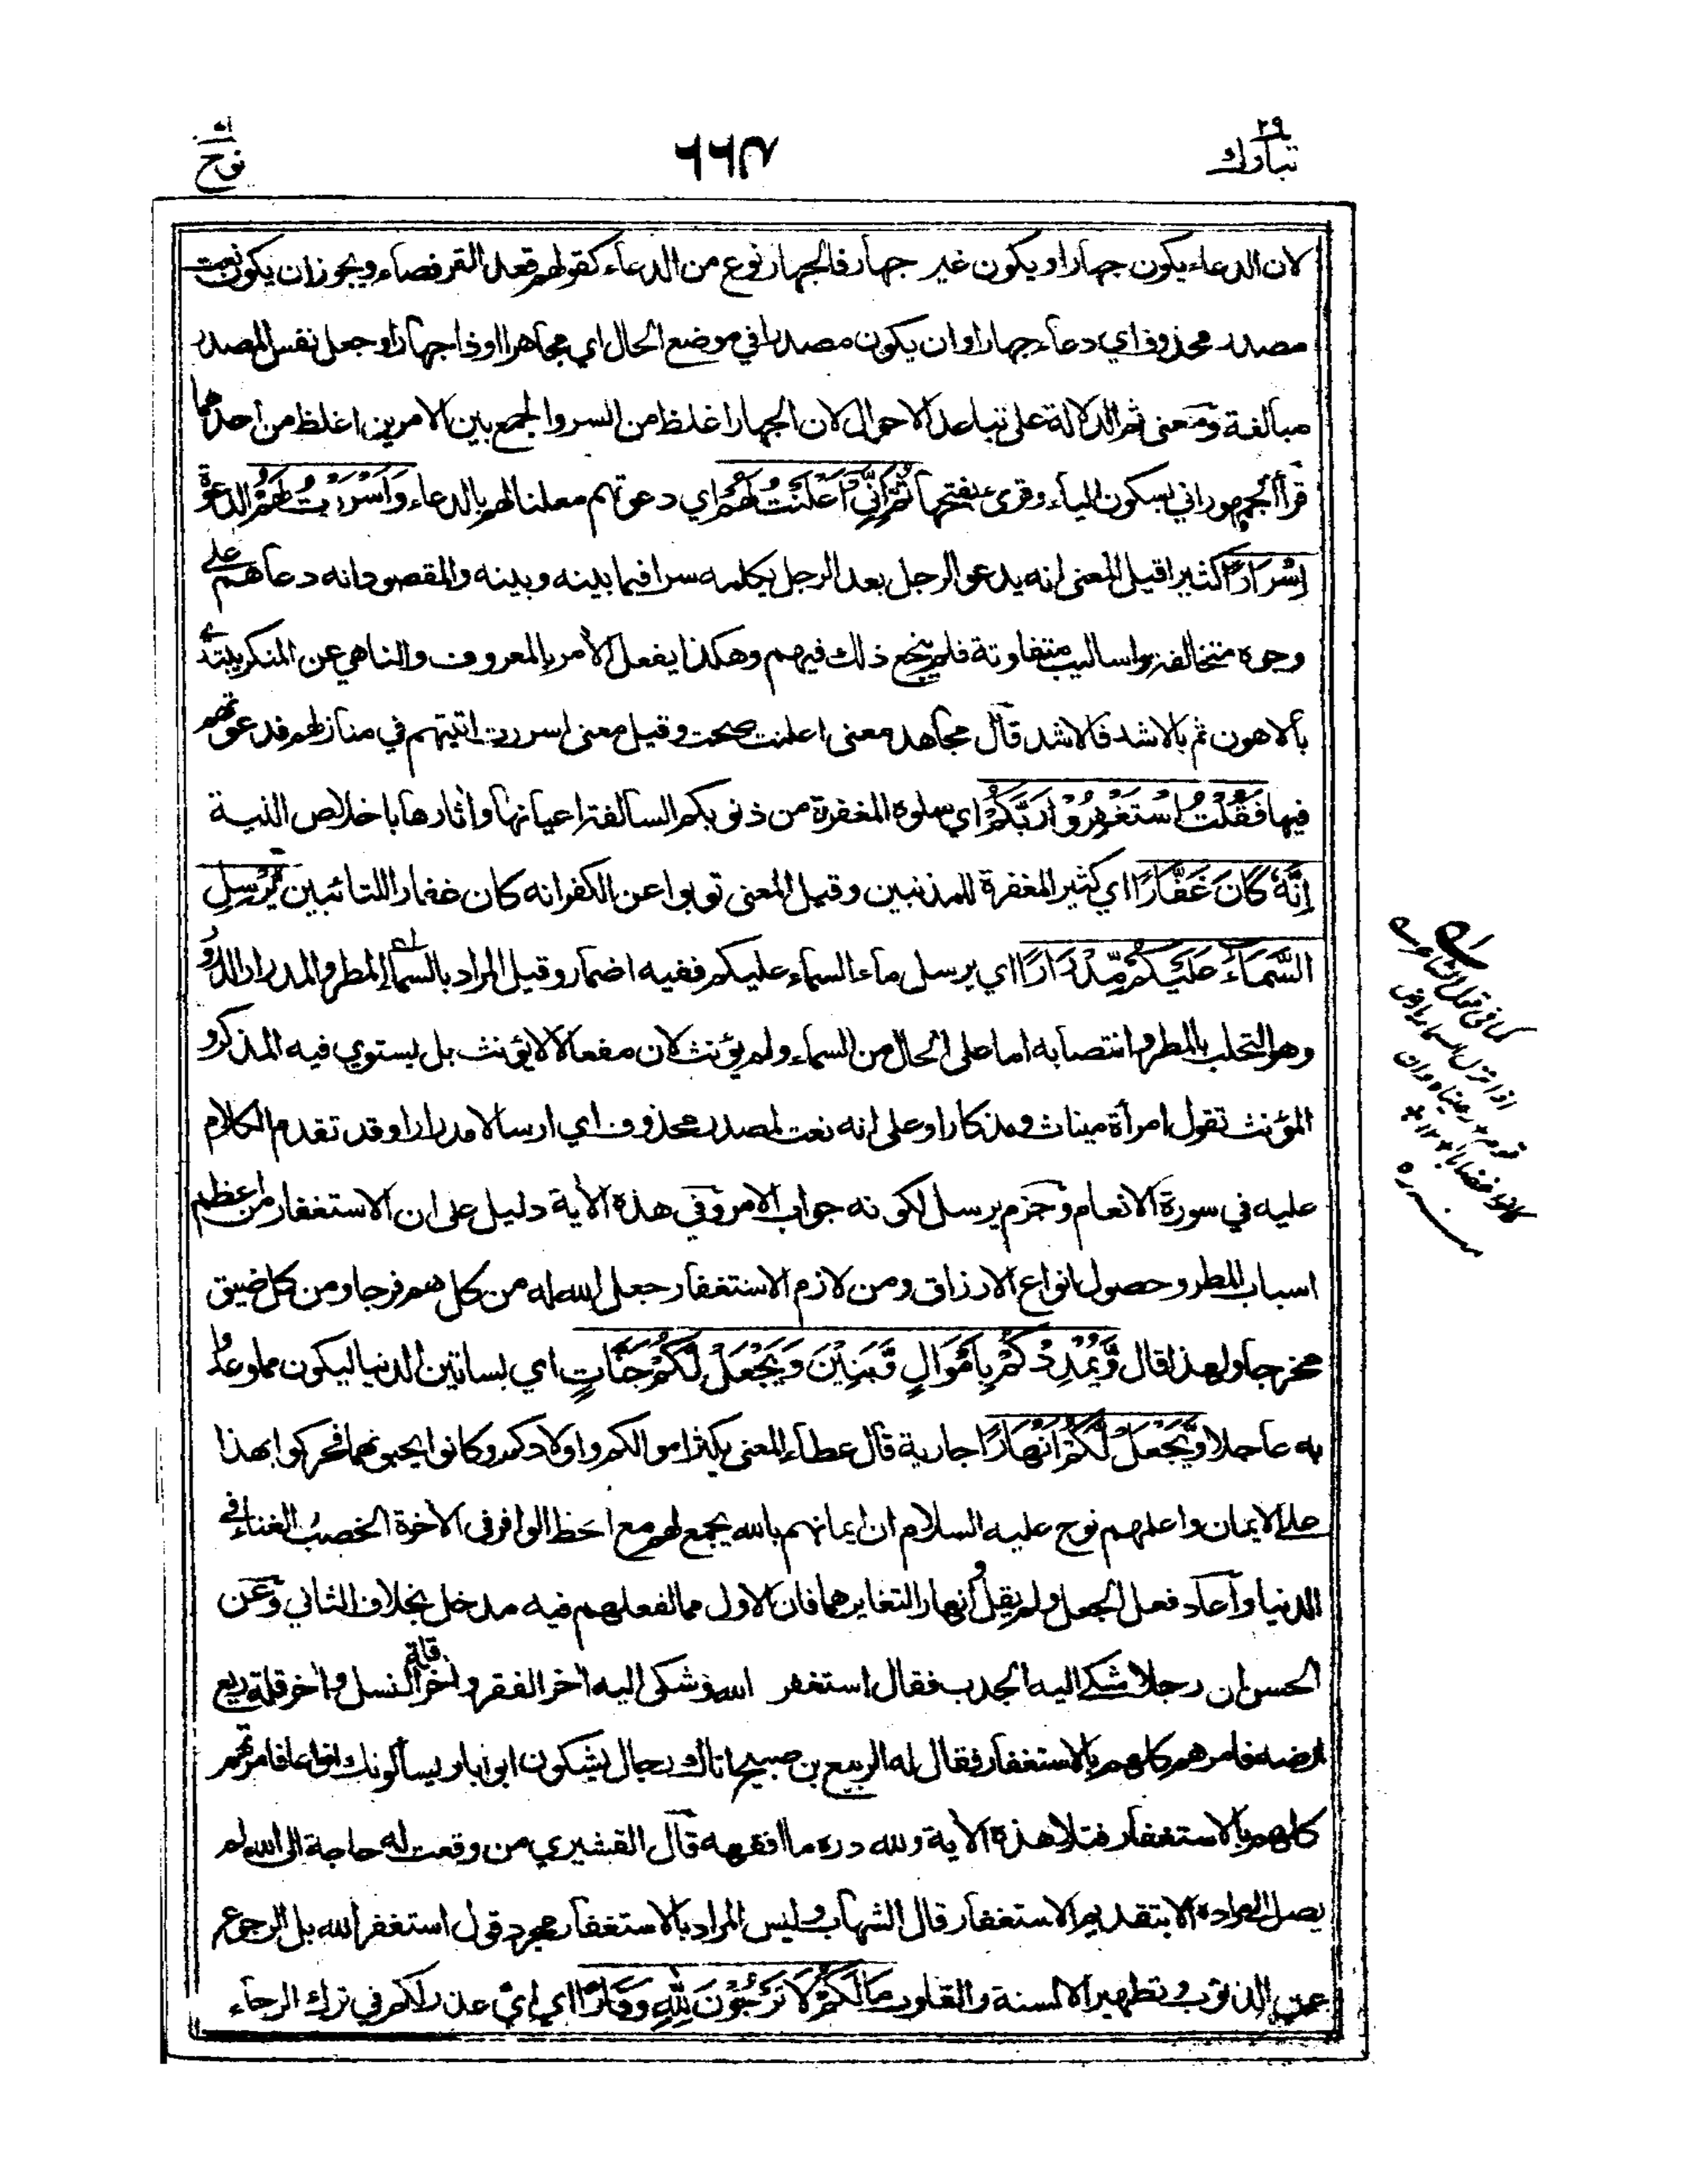 تبارك ٢٩
نوح
لان الدعاء يكون جهارا ويكون غير جهار فالجهار نوع من الدعاء كقولهم قعد القرفصاء ويجوز ان يكون نعت
مصدر محذوف اي دعاء جهارا وان يكون مصدرا في موضع الحال اي مجاهرا اوذا جهار او جعل نفس المصدر
مبالغة ومعنى ثم الدلالة على تباعد الاحوال لان الجهار اغلظ من السر والجمع بين الامرين اغلظ من احدهما
قرأ الجمهور اني بسكون الياء وقرئ بفتحها ثُمَّ اِنِّيْ اَعْلَنْتُ لَهُمْ اي دعوتهم معلنا لهم بالدعاء وَاَسْرَرْتُ لَهُمْ الدعوة
اِسْرَارًا كثيرا قيل المعنى انه يدعو الرجل بعد الرجل يكلمه سرا فيما بينه وبينه والمقصود انه دعاهم على
وجوه متخالفة واساليب متفاوتة فلم ينجع ذلك فيهم وهكذا يفعل الأمر بالمعروف والناهي عن المنكر يبتدئ
بالاهون ثم بالاشد فالاشد قال مجاهد معنى اعلنت صحت وقيل معنى اسررت اتيتهم في منازلهم فدعوتهم
فيها فَقُلْتُ اسْتَغْفِرُوْا رَبَّكُمْ اي سلوه المغفرة من ذنوبكم السالفة اعيانها وأثارها باخلاص النية
اِنَّهٗ كَانَ غَفَّارًا اي كثير المغفرة للمذنبين وقيل المعنى توبوا عن الكفر انه كان غفارا للتائبين يُرْسِلِ
السَّمَآءَ عَلَيْكُمْ مِّدْرَارًا اي يرسل ماء السماء عليكم ففيه اضمار وقيل المراد بالسماء المطر والمدرار الدرور
وهو التحلب بالمطر وانتصابه اما على الحال من السماء ولم يؤنث لان مفعالا لا يؤنث بل يستوي فيه المذكر و
المؤنث تقول امرأة ميناث ومذكار او على انه نعت لمصدر محذوف اي ارسالا مدرارا وقد تقدم الكلام
عليه في سورة الانعام وجزم يرسل لكونه جواب الامر وفي هذه الأية دليل على ان الاستغفار من اعظم
اسباب المطر وحصول انواع الارزاق ومن لازم الاستغفار جعل الله له من كل هم فرجا ومن كل ضيق
مخرجا ولهذا قال وَّيُمْدِدْكُمْ بِاَمْوَالٍ وَّبَنِيْنَ وَيَجْعَلْ لَّكُمْ جَنّٰتٍ اي بساتين الدنيا ليكون مما وعدوا
به عاجلا وَّيَجْعَلْ لَّكُمْ اَنْهَارًا جارية قال عطاء المعنى يكثر اموالكم واولادكم وكانوا يحبونهما فحركوا بهذا
على الايمان واعلمهم نوح عليه السلام ان ايمانهم بالله يجمع لهم مع الحظ الوافر في الأخرة الخصب والغناء في
الدنيا واعاد فعل الجعل ولم يقل وأنهارا لتغايرهما فان الاول مما لفعلهم فيه مدخل بخلاف الثاني وعن
الحسن ان رجلا شكى اليه الجدب فقال استغفر الله وشكى اليه أخر الفقر وأخر قلة النسل وأخر قلة ريع
ارضه فامرهم كلهم بالاستغفار فقال له الربيع بن صبيح اتاك رجال يشكون ابوابا ويسألونك انواعا فامرتهم
كلهم بالاستغفار فتلا هذه الأية ولله دره ما افقهه قال القشيري من وقعت له حاجة الى الله لم
يصل الى مراده الا بتقديم الاستغفار قال الشهاب وليس المراد بالاستغفار مجرد قول استغفر الله بل الرجوع
عن الذنوب وتطهير الالسنة والقلوب مَا لَكُمْ لَا تَرْجُوْنَ لِلّٰهِ وَقَارًا اي اي عذر لكم في ترك الرجاء
كما في قول الشاعر
اذا نزل السماء بارض
قوم رعيناه وان
كانوا غضابا